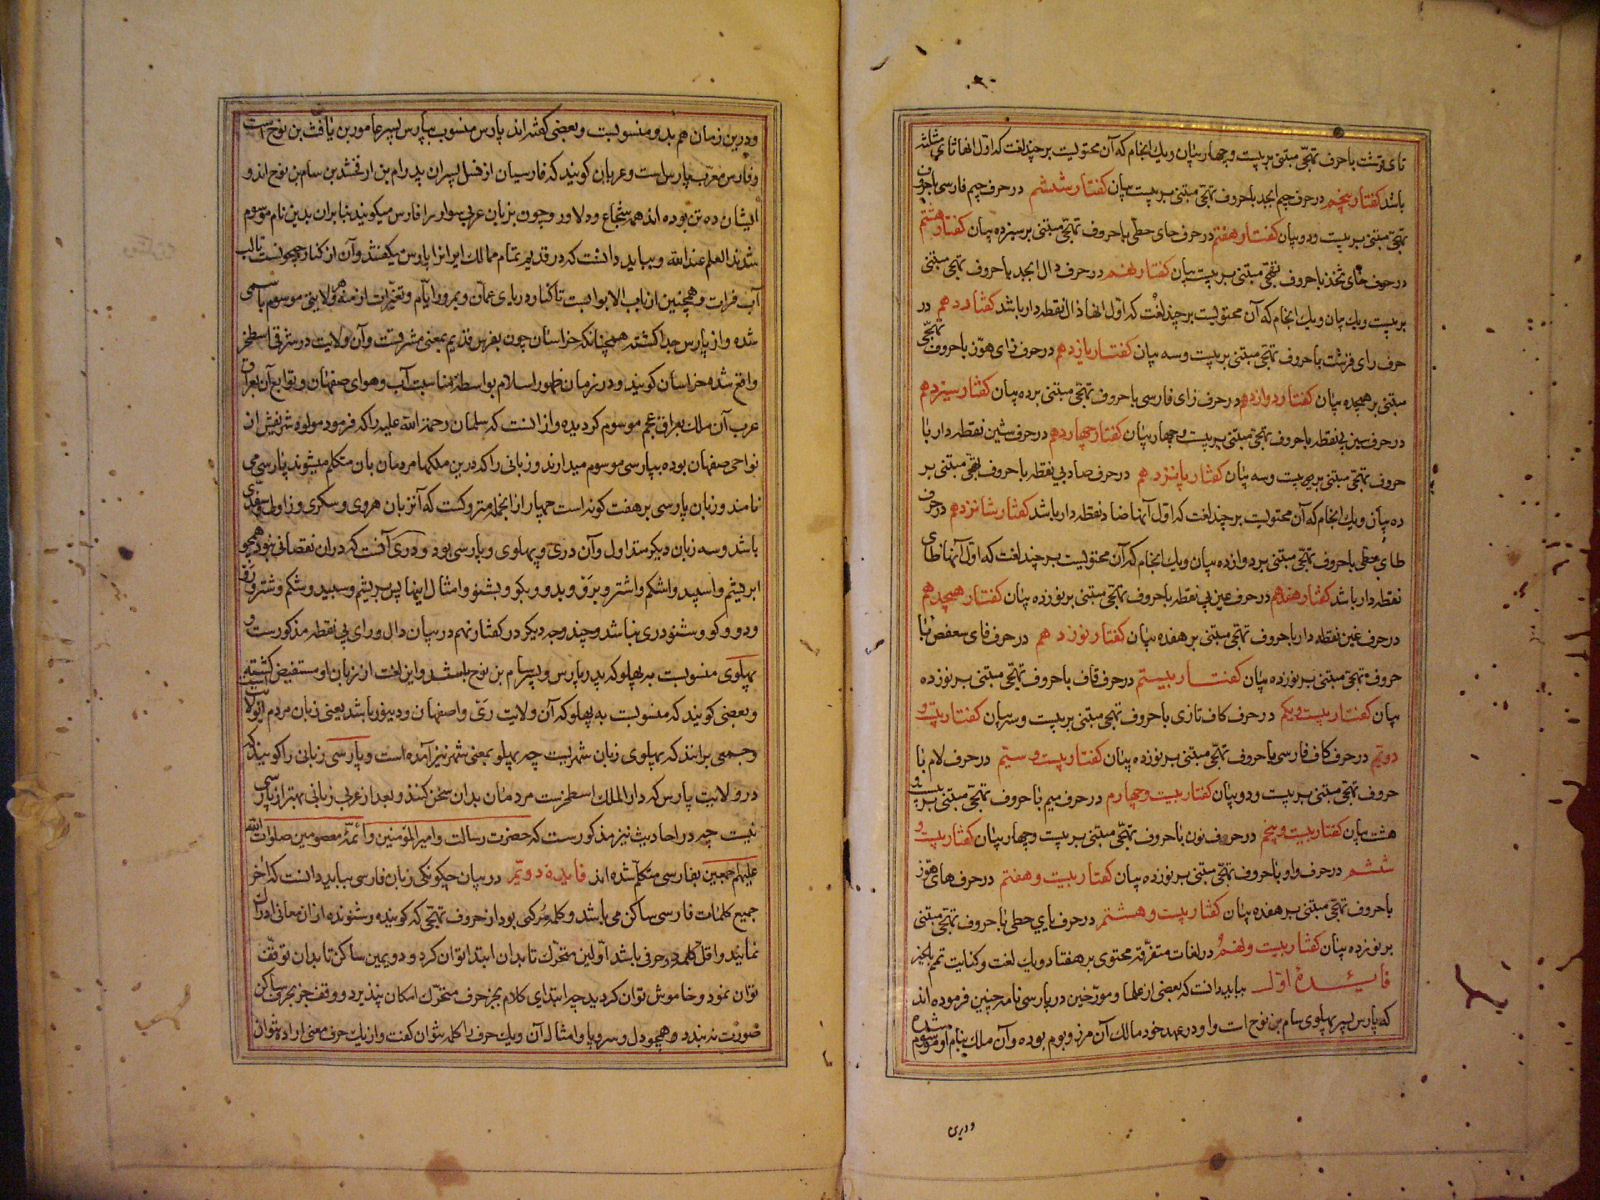 تای قرشت با حروف تهجی مبتنی بر بیست و چهار بیان و یک انجام که آن محتویست بر چند لغت که اول آنها ثای مثلثه
باشد گفتار پنجم در حرف جیم ابجد با حروف تهجی مبتنی بر بیست بیان گفتار ششم در حرف جیم فارسی با حروف
تهجی مبتنی بر بیست و دو بیان گفتار هفتم در حرف حای حطی با حروف تهجی مبتنی بر سیزده بیان گفتار هشتم
در حرف خای ثخذ با حروف تهجی مبتنی بر بیست بیان گفتار نهم در حرف دال ابجد با حروف تهجی مبتنی
بر بیست و یک بیان و یک انجام که آن محتویست بر چند لغت که اول آنها ذال نقطه دار باشد گفتار دهم در
حرف رای قرشت با حروف تهجی مبتنی بر بیست و سه بیان گفتار یازدهم در حرف زای هوز با حروف تهجی
مبتنی بر هیجده بیان گفتار دوازدهم در حرف زای فارسی با حروف تهجی مبتنی بر ده بیان گفتار سیزدهم
در حرف سین بی نقطه با حروف تهجی مبتنی بر بیست و چهار بیان گفتار چهاردهم در حرف شین نقطه دار با
حروف تهجی مبتنی بر بیست و سه بیان گفتار پانزدهم در حرف صاد بی نقطه با حروف تهجی مبتنی بر
ده بیان و یک انجام که آن محتویست بر چند لغت که اول آنها ضاد نقطه دار باشد گفتار شانزدهم در حرف
طای حطی با حروف تهجی مبتنی بر دوازده بیان و یک انجام که آن محتویست بر چند لغت که اول آنها ظای
نقطه دار باشد گفتار هفدهم در حرف عین بی نقطه با حروف تهجی مبتنی بر نوزده بیان گفتار هیجدهم
در حرف غین نقطه دار با حروف تهجی مبتنی بر هفده بیان گفتار نوزدهم در حرف فای سعفص با
حروف تهجی مبتنی بر نوزده بیان گفتار بیستم در حرف قاف با حروف تهجی مبتنی بر نوزده
بیان گفتار بیست و یکم در حرف کاف تازی با حروف تهجی مبتنی بر بیست و سه بیان گفتار بیست و
دوم در حرف کاف فارسی با حروف تهجی مبتنی بر نوزده بیان گفتار بیست و سیم در حرف لام با
حروف تهجی مبتنی بر بیست و دو بیان گفتار بیست و چهارم در حرف میم با حروف تهجی مبتنی بر بیست و
هشت بیان گفتار بیست و پنجم در حرف نون با حروف تهجی مبتنی بر بیست و چهار بیان گفتار بیست و
ششم در حرف واو با حروف تهجی مبتنی بر نوزده بیان گفتار بیست و هفتم در حرف های هوز
با حروف تهجی مبتنی بر هفده بیان گفتار بیست و هشتم در حرف یای حطی با حروف تهجی مبتنی
بر نوزده بیان گفتار بیست و نهم در لغات متفرقه محتوی بر هفتاد و یک لغت و کنایت
فائدۀ اول بباید دانست که بعضی از علما و مورخین در پارسی نامه چنین فرموده اند
که پارس پسر پهلوی سام بن نوح است و او در عهد خود مالک آن مرز و بوم بوده و آن ملک بنام او موسوم شده
و درین
و درین زمان هم بدو منسوبست و بعضی گفته اند پارس منسوب بپارس پسر عامور بن یافث بن نوح است
و فارس معرب پارس است و عربان گویند که فارسیان از نسل پسران پدرام بن ارفخشد بن سام بن نوح اند و
ایشان ده تن بوده اند همه شجاع و دلاور و چون بزبان عربی سوار را فارس میگویند بنابران بدین نام موسوم
شدند العلم عند الله و بباید دانست که در قدیم تمام ممالک ایرانرا پارس میگفتند و آن از کنار جیحونست تا لب
آب فرات و همچنین از باب الابوابست تا کنار دریای عمان و بمرور ایام و تغیرات ازمنه هر ولایتی موسوم باسمی
شده و از پارس جدا گشته همچنانکه خراسان چون بفرس قدیم بمعنی مشرقست و آن ولایت در شرقی اسطخر
واقع شده خراسان گویند و در زمان ظهور اسلام بواسطه مناسبت آب و هوای صفهان و توابع آن بعراق
عرب آن ملک بعراق عجم موسوم گردیده و از آنست که سلمان رحمة الله علیه را که فرمود مولود شریفش از
نواحی صفهان بوده بپارسی موسوم میدارند و زبانی را که درین ملکها مردمان بان متکلم میشوند پارسی می
نامند و زبان پارسی بر هفت گونه است چهار از انجمله متروکست که آن زبان هروی و سگزی و زاولی و سغدی
باشد و سه زبان دیگر متداول و آن دری و پهلوی و پارسی بود و دری آنست که دران نقصانی نبود همچو
ابریشم و اسپید و اشکم و اشتر و برَو و بدو و بگو و بشنو و امثال اینها پس بریشم و سپید و شکم و شتر و رَو
و دو و گو و شنو دری نباشد و چند وجه دیگر در گفتار نهم در بیان دال و رای بی نقطه مذکورست و
پهلوی منسوبست بپهلو که پدر پارس و پسر سام بن نوح باشد و این لغت از زبان او مستفیض گشته
و بعضی گویند که منسوبست به پهلو که آن ولایت ری و اصفهان و دینور باشد یعنی زبان مردم آن ولایت
و جمعی برانند که پهلوی زبان شهریست چه پهلو بمعنی شهر نیز آمده است و پارسی زبانی را گویند که
در ولایت پارس که دار الملک اسطخرست مردمان بدان سخن کنند و بعد از عربی زبانی بهتر از پارسی
نیست چه در احادیث نیز مذکورست که حضرت رسالت و امیر المؤمنین و ائمۀ معصومین صلوات الله
علیهم اجمعین بفارسی متکلم شده اند فایدۀ دوم در بیان چگونگی زبان فارسی بباید دانست که آخر
جمیع کلمات فارسی ساکن می باشد و کلمه مرکبی بود از حروف تهجی که گوینده و شنونده از ان معانی ادراک
نمایند و اقل کلمه دو حرفی باشد اولین متحرک تا بدان ابتدا توان کرد و دویمین ساکن تا بدان توقف
توان نمود و خاموش توان گردید چه ابتدای کلام بجز حرف متحرک امکان پذیرد و وقف جز بحرف ساکن
صورت نه بندد همچو دل و سر و پا و امثال آن و یک حرف را کلمه نتوان گفت و از یک حرف معنی اراده نتوان